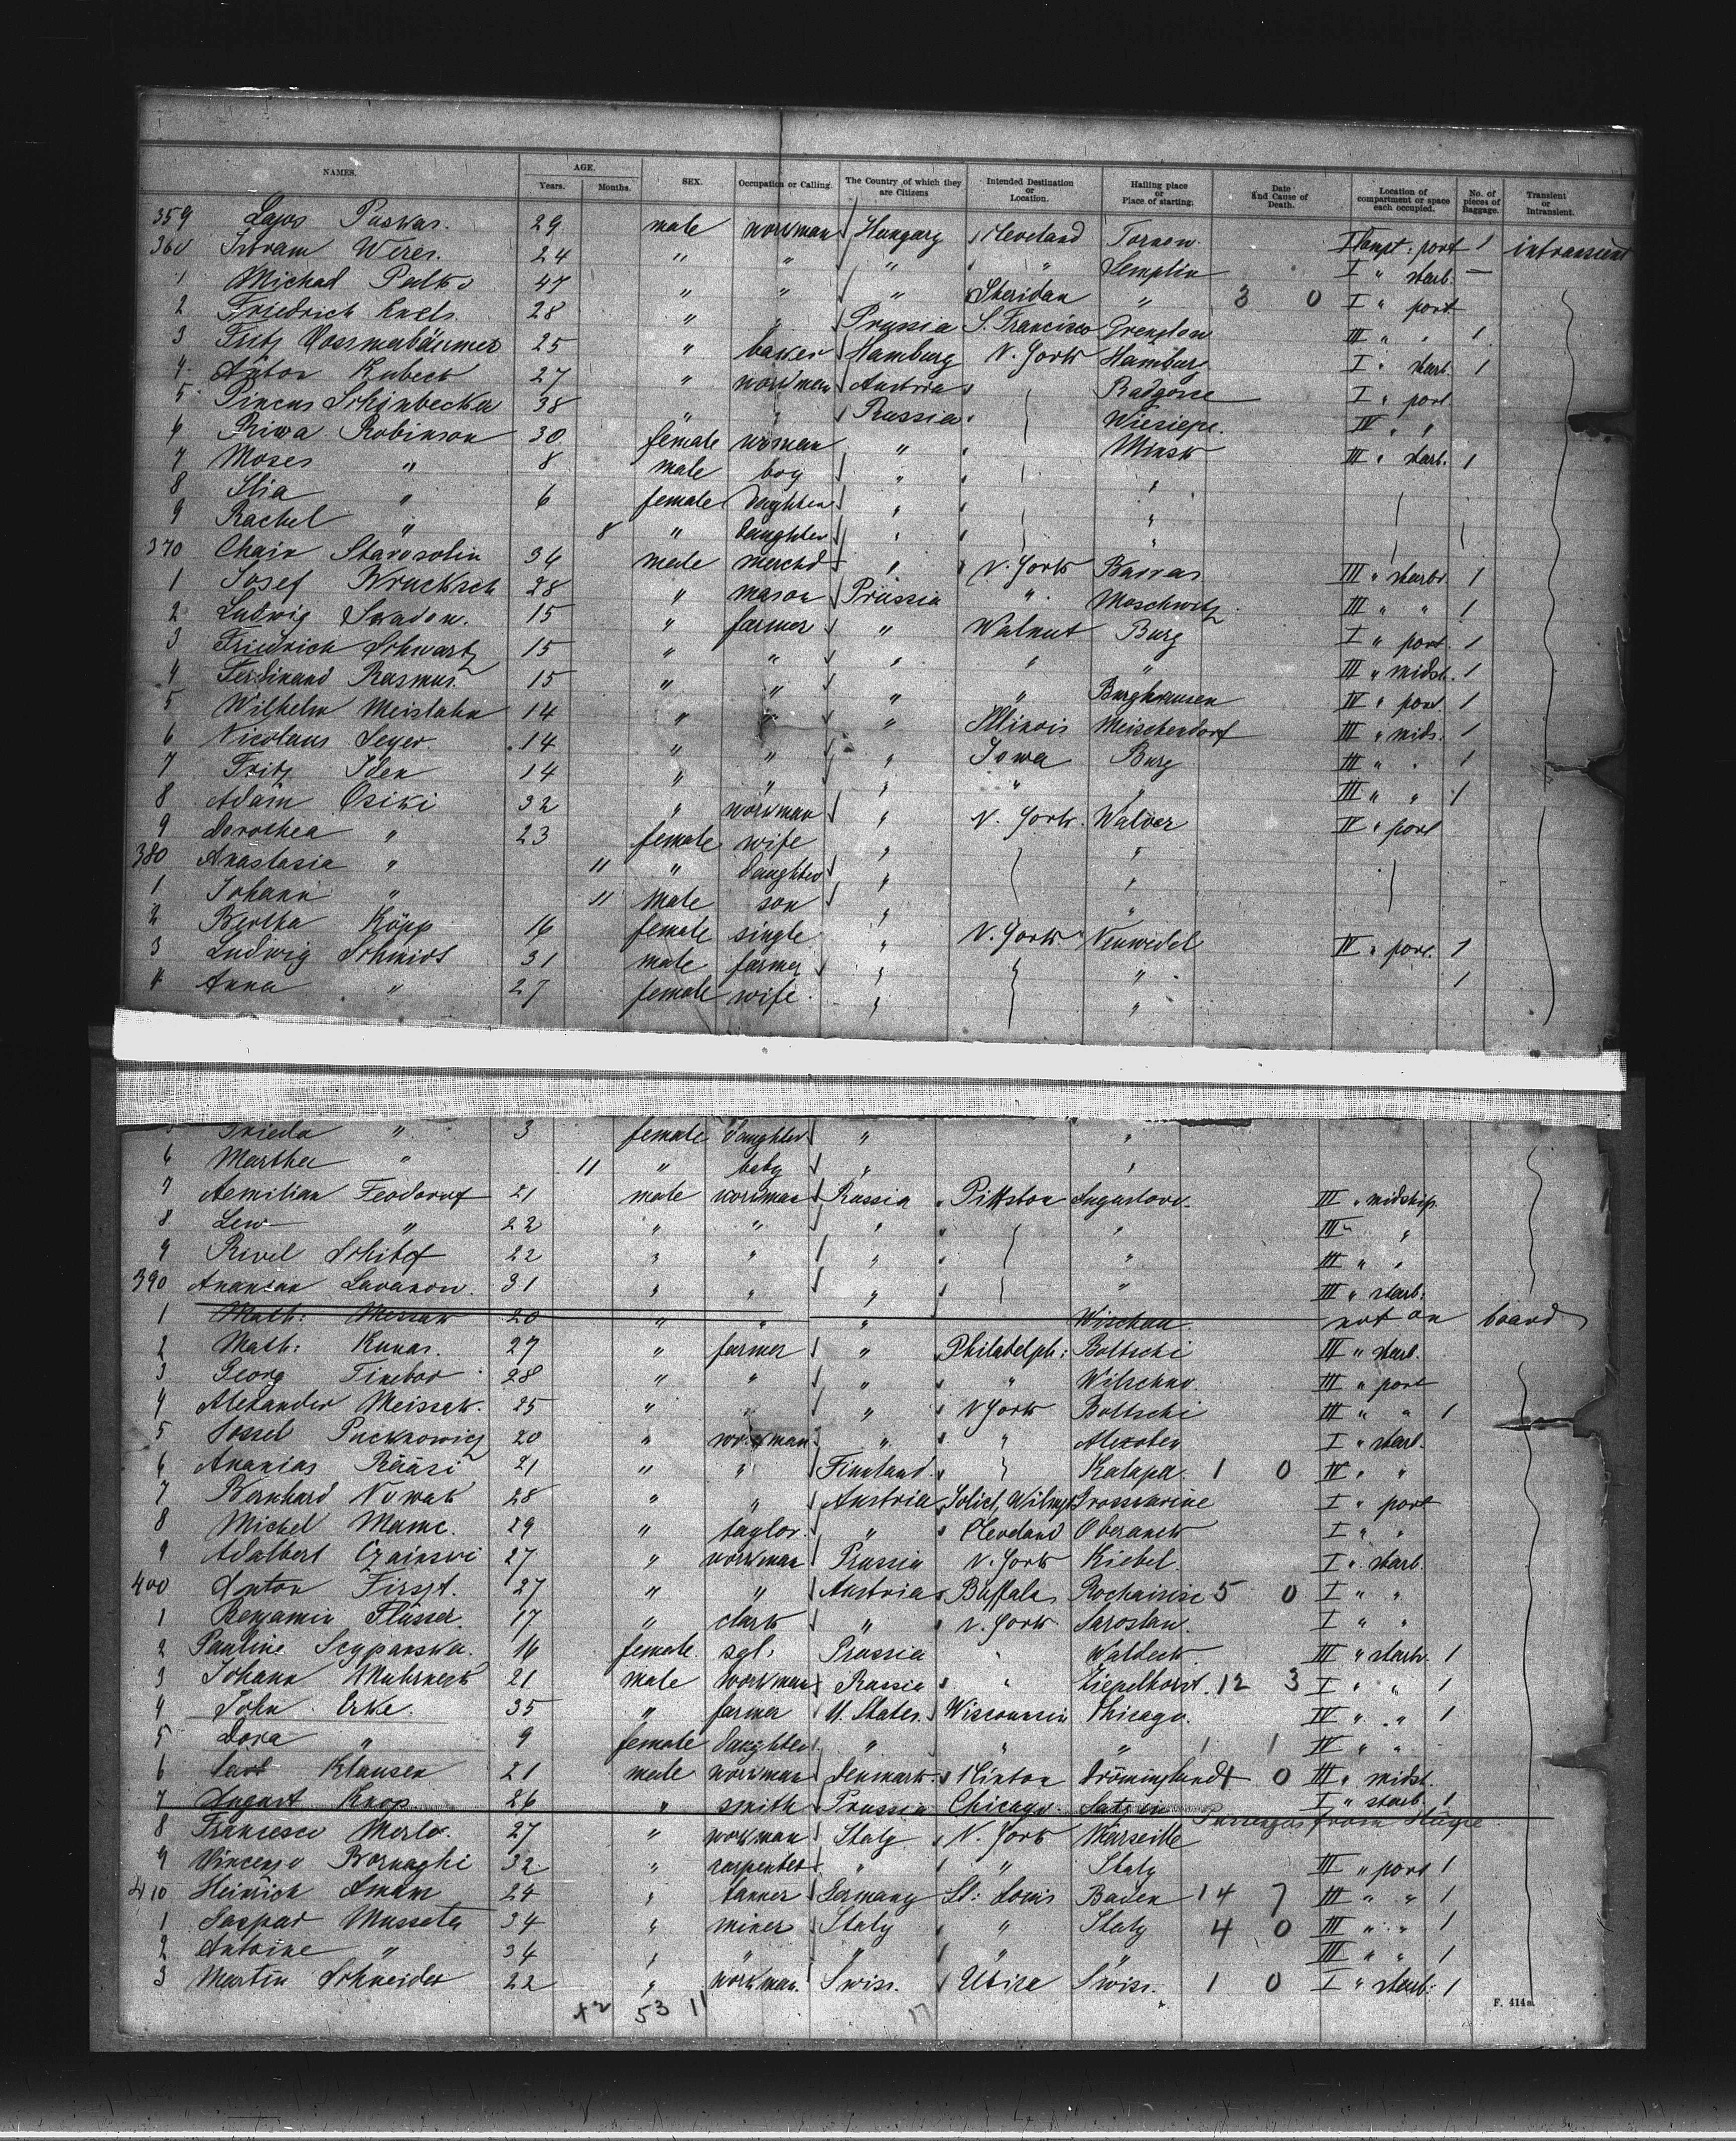 NAMES. AGE. Years. Months. SEX. Occupation or Calling. The Country of which they are Citizens Intended Destination or Location. Hailing place or Place of starting. Date And Cause of Death. Location of compartment or space each occupied. No. of pieces of Baggage. Transient or Intransient.
359 Lajos Puskas. 29 male workman Hungary Cleveland Tornew. I Compt: port 1 intransient
360 Weres. 24 " " " " Semplin I " starb. —
1 Michael Palko 47 " " " Sheridan " 3 0 I " port
2 Friedrich 28 " " Prussia S. Francisco III " " 1
3 Fritz Vossmerbäumer 25 " baker Hamburg N. York Hamburg I " starb. 1
4 Anton Kubeck 27 " workman Austria Radgosse I " port
5 Pincus Scheinbecka 38 " " Russia Wiesiepe. IV " "
6 Riwa Robinson 30 female woman " Minsk III " starb. 1
7 Moses " 8 male boy " "
8 " 6 female daughter " "
9 Rachel " 8 " daughter " "
370 Chain Starosolin 34 male merchd " N. York III " starb. 1
1 Josef Wrucksch 28 " mason Prussia " Moschwitz III " " 1
2 Ludwig Swadow. 15 " farmer " Walnut Burg I " port 1
3 Friedrich Schwartz 15 " " " " " III " midsh. 1
4 Ferdinand Rasmus 15 " " " " Burghausen IV " port 1
5 Wilhelm Meislahn 14 " " " Illinois Meischendorf III " mids. 1
6 Nicolaus Leger 14 " " " Iowa Burg III " " 1
7 Fritz Iden 14 " " " " " III " " 1
8 Adam Osiki 32 " workman " N. York. IV " port
9 Dorothea " 23 female wife " "
380 Anastasia " 11 " daughter " "
1 Johann " 11 male son " "
2 Bertha Köpp 16 female single " N. York Neuwedel IV " port. 1
3 Ludwig Schmidt 31 male farmer " " 1
4 Anna " 27 female wife " "
Frieda " 3 female daughter " "
6 Martha " 11 " baby " "
7 Aemilian Feodorof 21 male workman Russia Pittston Augustowo. III " midship.
8 Lew " 22 " " " " III " "
9 Rivel Schitof 22 " " " " III " "
390 Ananian Lavanow. 31 " " " " III " starb.
1 Math: Messak 20 " " " Wischau. not on board
2 Math: Kunas. 27 " farmer " Philadelph: Boltschi III " starb.
3 Georg Tinebor 28 " " " " Witschno. III " port
4 Alexander Meissak. 25 " " " N York Boltschi III " " 1
5 Sossel Puckrowicz 20 " workman " " I " starb.
6 Ananias Rääsi 21 " " Finnland. Kalapa. 1 0 IV " "
7 Bernhard Nowak 28 " " Austria Joliet, I " port
8 Michel Mame. 29 " taylor. " Cleveland I " "
9 Adalbert Czainski 27 " workman Prussia N. York Kiebel. I " starb.
400 Anton Firszt. 27 " " Austria Buffalo 5 0 I " "
1 Benjamin Flüsser. 17 " clark " N. York Jaroslau. I " "
2 Pauline Scypanska. 16 female sgl. Prussia " Waldeck III " starb. 1
3 Johann 21 male workman Russia " Ziepelhorst. 12 3 I " " 1
4 John Erke. 35 " farmer U. States. Wisconsin Chicago. IV " " 1
5 Dora " 9 female daughter " " " 1 1 IV " "
6 Carl Klausen 21 male workman Denmark. Clinton Drönninglund 1 0 III " midst.
7 August Knop. 26 " smith Prussia Chicago. I " starb. 1
Passengers from
8 Francesco Merlo. 27 " workman Italy N. York Marseille
9 Vincenzo Bornaghi 32 " carpenter " " Italy III " port 1
410 Heinrich Amann 24 " tanner Germany St: Louis Baden 14 7 III " " 1
1 Gaspar Musseta 34 " miner Italy " Italy 4 0 III " " 1
2 Antoine " 34 " " " " " III " " 1
3 Martin Schneider 22 " workman. Swiss. Utica Swiss. 1 0 I " starb: 1
42 53 11 17
F. 414a.